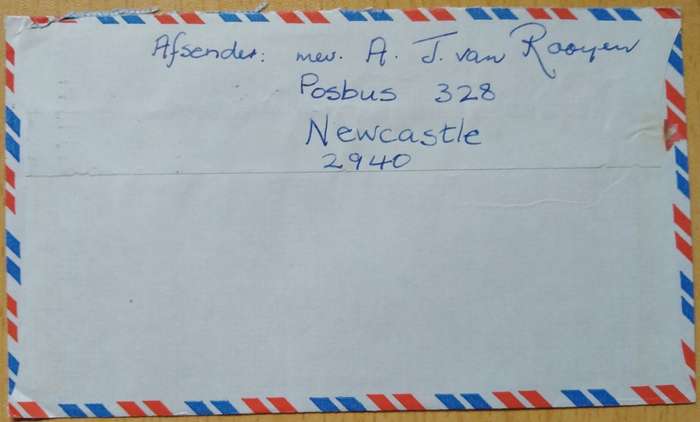 Afsender: mev. A. J. van Rooyen
Posbus 328
Newcastle
2940